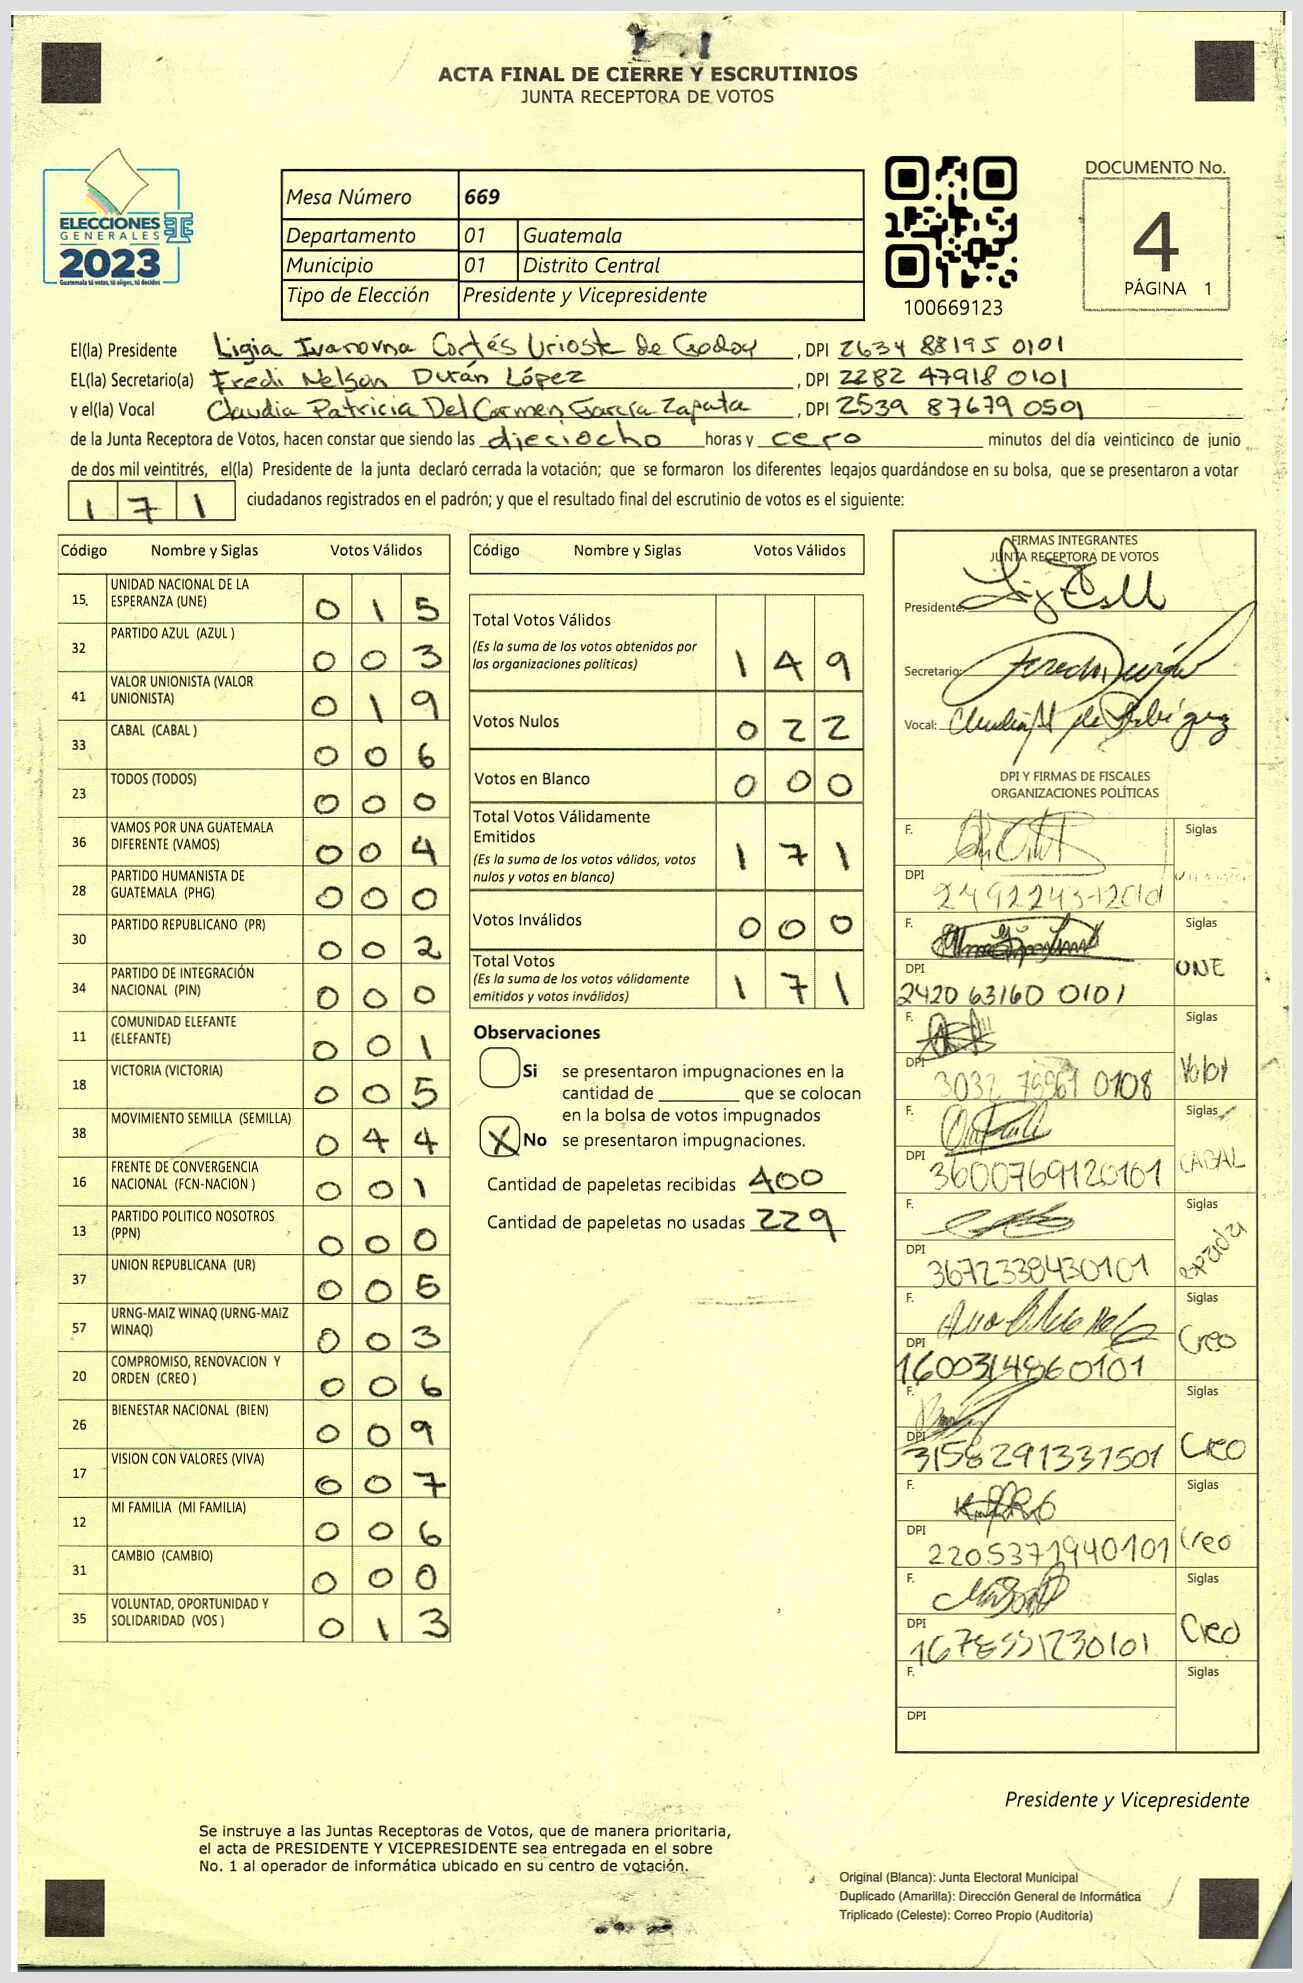 ACTA FINAL DE CIERRE Y ESCRUTINIOS
JUNTA RECEPTORA DE VOTOS
ELECCIONES
GENERALES
2023
Guatemala tú votas, tú eliges, tú decides
Mesa Número 669
Departamento 01 Guatemala
Municipio 01 Distrito Central
Tipo de Elección Presidente y Vicepresidente
100669123
DOCUMENTO No.
4
PÁGINA 1
El(la) Presidente Ligia Ivanovna Cortés Urioste de Godoy, DPI 2634 88195 0101
EL(la) Secretario(a) Fredi Nelson Durán López, DPI 2282 47918 0101
y el(la) Vocal Claudia Patricia Del Carmen García Zapata, DPI 2539 87679 0501
de la Junta Receptora de Votos, hacen constar que siendo las dieciocho horas y cero minutos del día veinticinco de junio
de dos mil veintitrés, el(la) Presidente de la junta declaró cerrada la votación; que se formaron los diferentes legajos guardándose en su bolsa, que se presentaron a votar
171 ciudadanos registrados en el padrón; y que el resultado final del escrutinio de votos es el siguiente:
Código Nombre y Siglas Votos Válidos
15. UNIDAD NACIONAL DE LA ESPERANZA (UNE) 015
32 PARTIDO AZUL (AZUL ) 003
41 VALOR UNIONISTA (VALOR UNIONISTA) 019
33 CABAL (CABAL ) 006
23 TODOS (TODOS) 000
36 VAMOS POR UNA GUATEMALA DIFERENTE (VAMOS) 004
28 PARTIDO HUMANISTA DE GUATEMALA (PHG) 000
30 PARTIDO REPUBLICANO (PR) 002
34 PARTIDO DE INTEGRACIÓN NACIONAL (PIN) 000
11 COMUNIDAD ELEFANTE (ELEFANTE) 001
18 VICTORIA (VICTORIA) 005
38 MOVIMIENTO SEMILLA (SEMILLA) 044
16 FRENTE DE CONVERGENCIA NACIONAL (FCN-NACION ) 001
13 PARTIDO POLITICO NOSOTROS (PPN) 000
37 UNION REPUBLICANA (UR) 005
57 URNG-MAIZ WINAQ (URNG-MAIZ WINAQ) 003
20 COMPROMISO, RENOVACION Y ORDEN (CREO ) 006
26 BIENESTAR NACIONAL (BIEN) 009
17 VISION CON VALORES (VIVA) 007
12 MI FAMILIA (MI FAMILIA) 006
31 CAMBIO (CAMBIO) 000
35 VOLUNTAD, OPORTUNIDAD Y SOLIDARIDAD (VOS ) 013
Código Nombre y Siglas Votos Válidos
Total Votos Válidos 149
(Es la suma de los votos obtenidos por
las organizaciones políticas)
Votos Nulos 022
Votos en Blanco 000
Total Votos Válidamente
Emitidos 171
(Es la suma de los votos válidos, votos
nulos y votos en blanco)
Votos Inválidos 000
Total Votos 171
(Es la suma de los votos válidamente
emitidos y votos inválidos)
Observaciones
Si se presentaron impugnaciones en la
cantidad de ________ que se colocan
en la bolsa de votos impugnados
X No se presentaron impugnaciones.
Cantidad de papeletas recibidas 400
Cantidad de papeletas no usadas 229
FIRMAS INTEGRANTES
JUNTA RECEPTORA DE VOTOS
Presidente:
Secretario:
Vocal:
DPI Y FIRMAS DE FISCALES
ORGANIZACIONES POLÍTICAS
F. Siglas
DPI
F. Siglas
DPI 2420 63160 0101 UNE
F. Siglas
DPI 0108 Valor
F. Siglas
DPI 3600769120101 CABAL
F. Siglas
DPI 3672338430101
F. Siglas
DPI 1600314860101 Creo
F. Siglas
DPI 3158291331501 Creo
F. Siglas
DPI 2205371940101 Creo
F. Siglas
DPI Creo
F. Siglas
DPI
Presidente y Vicepresidente
Se instruye a las Juntas Receptoras de Votos, que de manera prioritaria,
el acta de PRESIDENTE Y VICEPRESIDENTE sea entregada en el sobre
No. 1 al operador de informática ubicado en su centro de votación.
Original (Blanca): Junta Electoral Municipal
Duplicado (Amarilla): Dirección General de Informática
Triplicado (Celeste): Correo Propio (Auditoría)